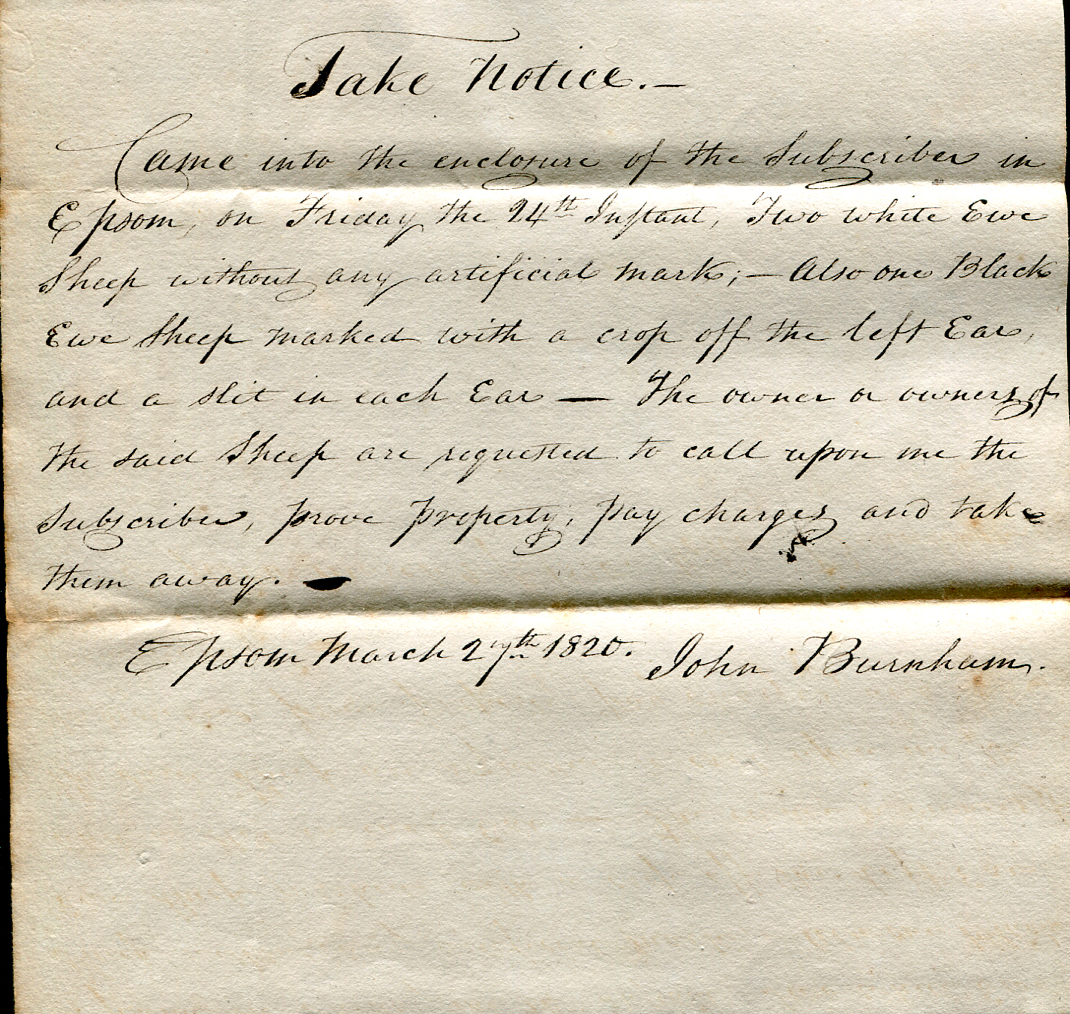 Take Notice.—
Came into the enclosure of the Subscriber in
Epsom, on Friday the 24th Instant, Two white Ewe
Sheep without any artificial mark; — Also one Black
Ewe Sheep marked with a crop off the left Ear,
and a slit in each Ear — The owner or owners of
the said Sheep are requested to call upon me the
Subscriber, prove property, pay charges and take
them away. —
Epsom March 27th 1820. John Burnham.